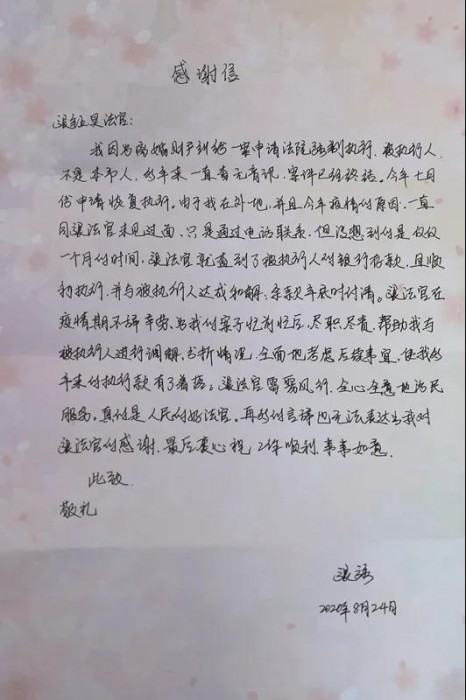 感谢信
法官：
我因为离婚财产纠纷一案申请法院强制执行，被执行人
不是本市人，多年来一直杳无音讯，案件已经终结。今年七月
份申请恢复执行。由于我在外地，并且今年疫情的原因，一直
同梁法官未见过面，只是通过电话联系，但没想到的是仅仅
一个月的时间，梁法官就查到了被执行人的银行存款，且顺
利执行，并与被执行人达成和解，余款年底时付清。梁法官在
疫情期不辞辛劳，为我的案子忙前忙后，尽职尽责，帮助我与
被执行人进行调解，分析情况，全面地考虑后续事宜，使我多
年来的执行款有了着落。梁法官雷厉风行，全心全意地为民
服务。真的是人民的好法官。再多的言语也无法表达出我对
梁法官的感谢，最后衷心祝工作顺利，事事如意。
此致
敬礼
2020年8月24日